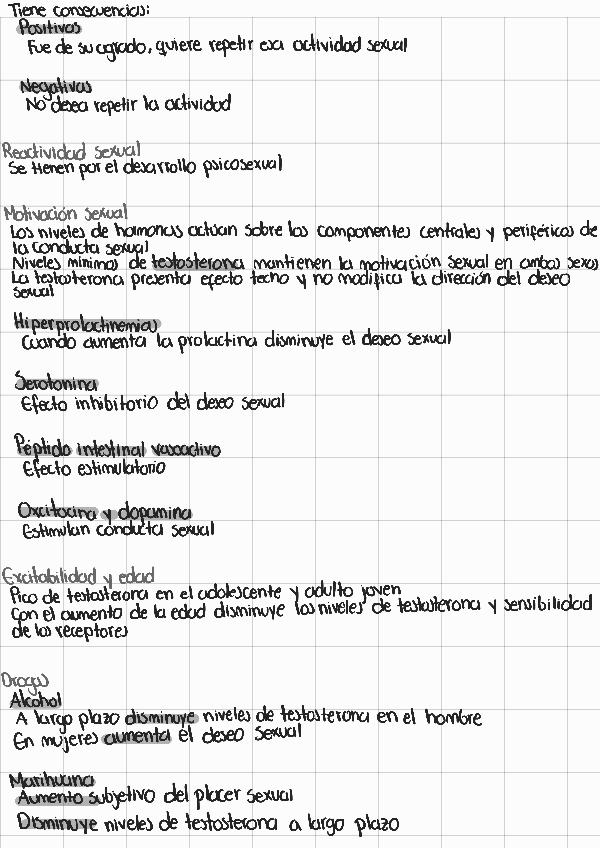 Tiene consecuencias:
Positivas
Fue de su agrado, quiere repetir esa actividad sexual
Negativas
No desea repetir la actividad
Reactividad sexual
Se tienen por el desarrollo psicosexual
Motivación sexual
Los niveles de homonas actúan sobre los componentes centrales y periféricos de
la conducta sexual
Niveles mínimos de testosterona mantienen la motivación sexual en ambos sexos
La testosterona presenta efecto techo y no modifica la dirección del deseo
sexual
Hiperprolactinemias
Cuando aumenta la prolactina disminuye el deseo sexual
Serotonina
Efecto inhibitorio del deseo sexual
Péptido intestinal vasoactivo
Efecto estimulatorio
Oxcitocina y dopamina
Estimulan conducta sexual
Excitabilidad y edad
Pico de testosterona en el adolescente y adulto joven
Con el aumento de la edad disminuye los niveles de testosterona y sensibilidad
de los receptores
Drogas
Alcohol
A largo plazo disminuye niveles de testosterona en el hombre
En mujeres aumenta el deseo sexual
Marihuana
Aumento subjetivo del placer sexual
Disminuye niveles de testosterona a largo plazo